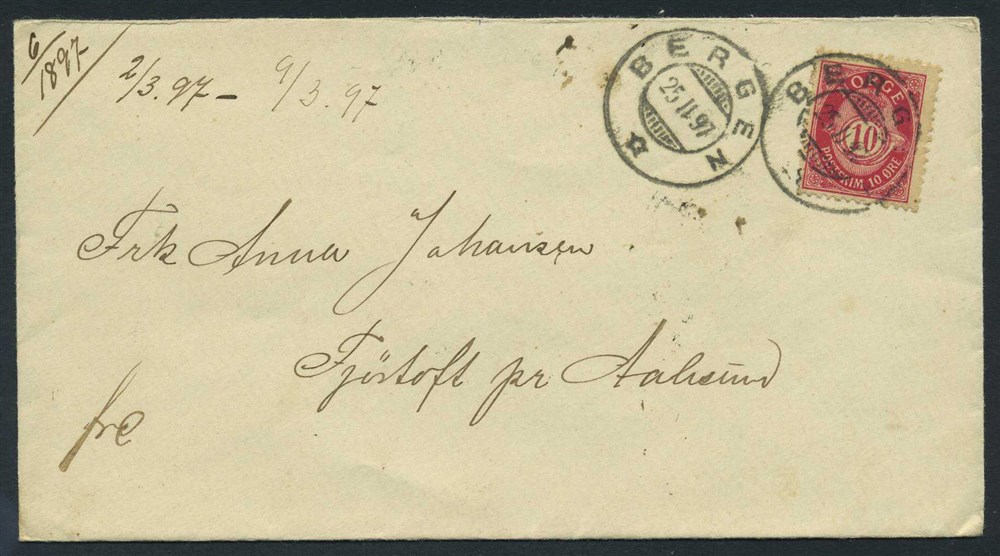 6/1897
2/3.97- 9/3.97
BERGEN
25 II 97
BERGEN
NORGE
10
POSTFRIM 10 ØRE
Frk Anna Johansen
Fjörtoft pr Aalesund
frc